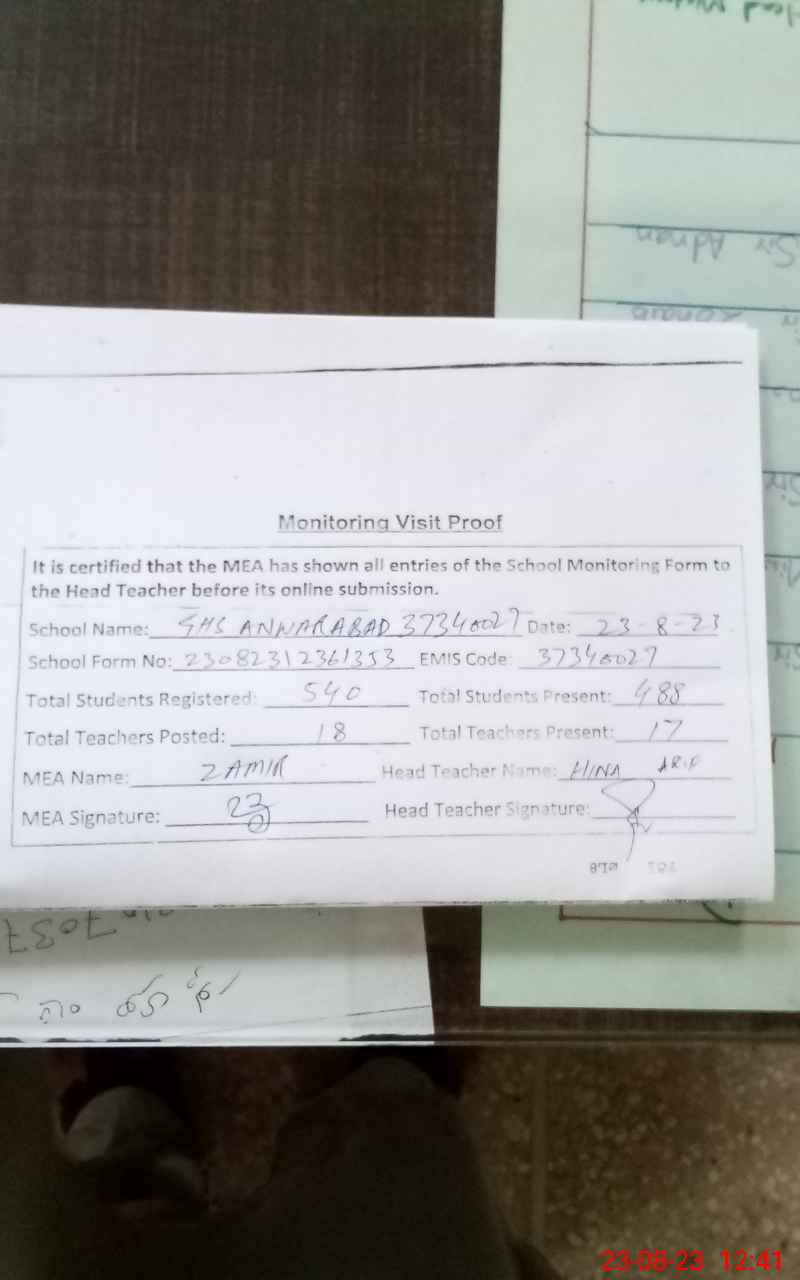 Head
Sir Adnan
Zonaib
Sir
Monitoring Visit Proof
It is certified that the MEA has shown all entries of the School Monitoring Form to
the Head Teacher before its online submission.
School Name: GHS ANWARABAD 37340027 Date: 23-8-23
School Form No: 23082312361353 EMIS Code: 37340027
Total Students Registered: 540 Total Students Present: 488
Total Teachers Posted: 18 Total Teachers Present: 17
MEA Name: ZAMIR Head Teacher Name: HINA ARIF
MEA Signature: Head Teacher Signature:
7037
23-08-23 12:41